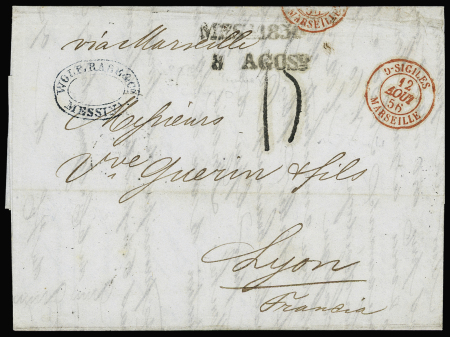 MARSEILLE
via Marseille
8 AGOSº
WOLF, & Cº
MESSINA
2·SICILES
12
AOUT
56
MARSEILLE
15
Messieurs
Vve Guerin & fils
Lyon
Francia